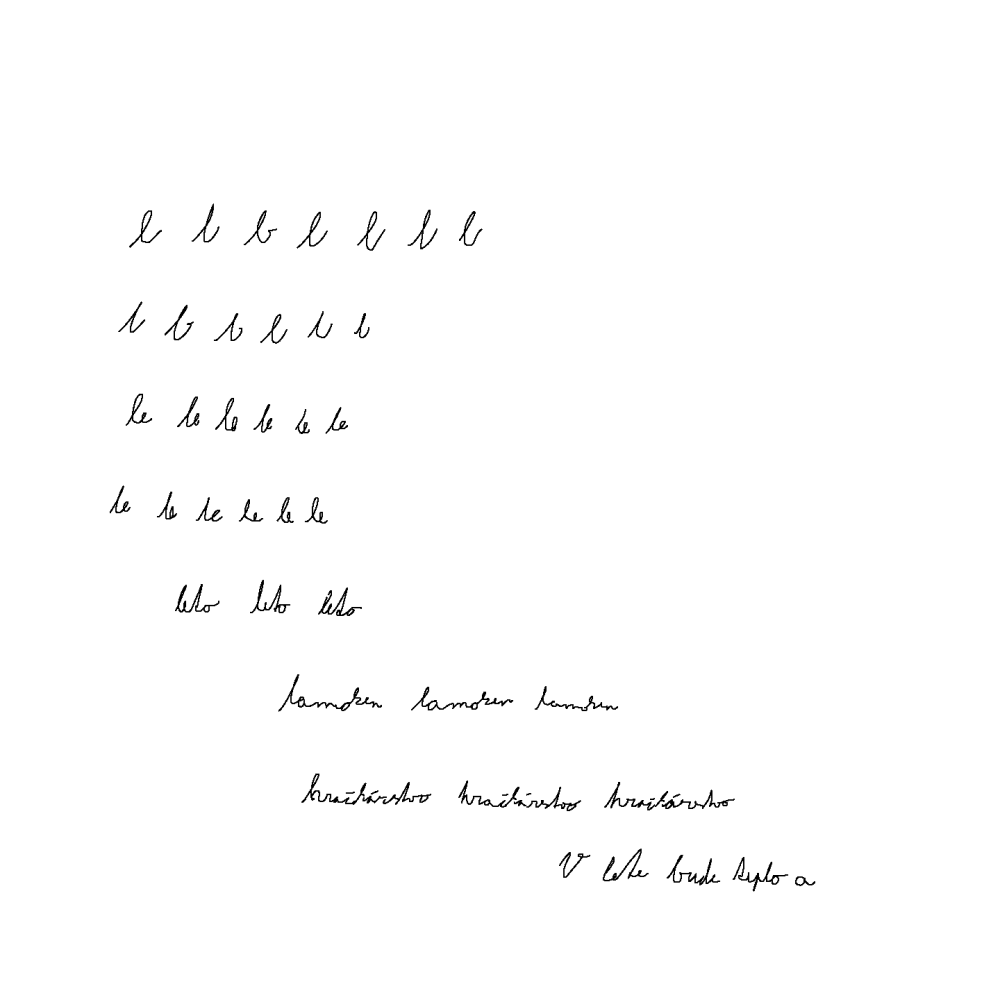 l l l l l l l
l l l l l l
le le le le le le
le le le le le le
leto leto leto
lamoken lamoken lamoken
hračkárstvo hračkárstvo hračkárstvo
V lete bude teplo a